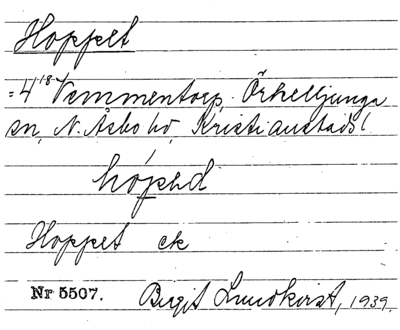 Hoppet
= 4¹⁸ Vemmentorp, Örkelljunga
sn, N. Åsbo hd, Kristianstads l
hópəd
Hoppet ck
Nr 5507. Birgit Lundkvist, 1939.